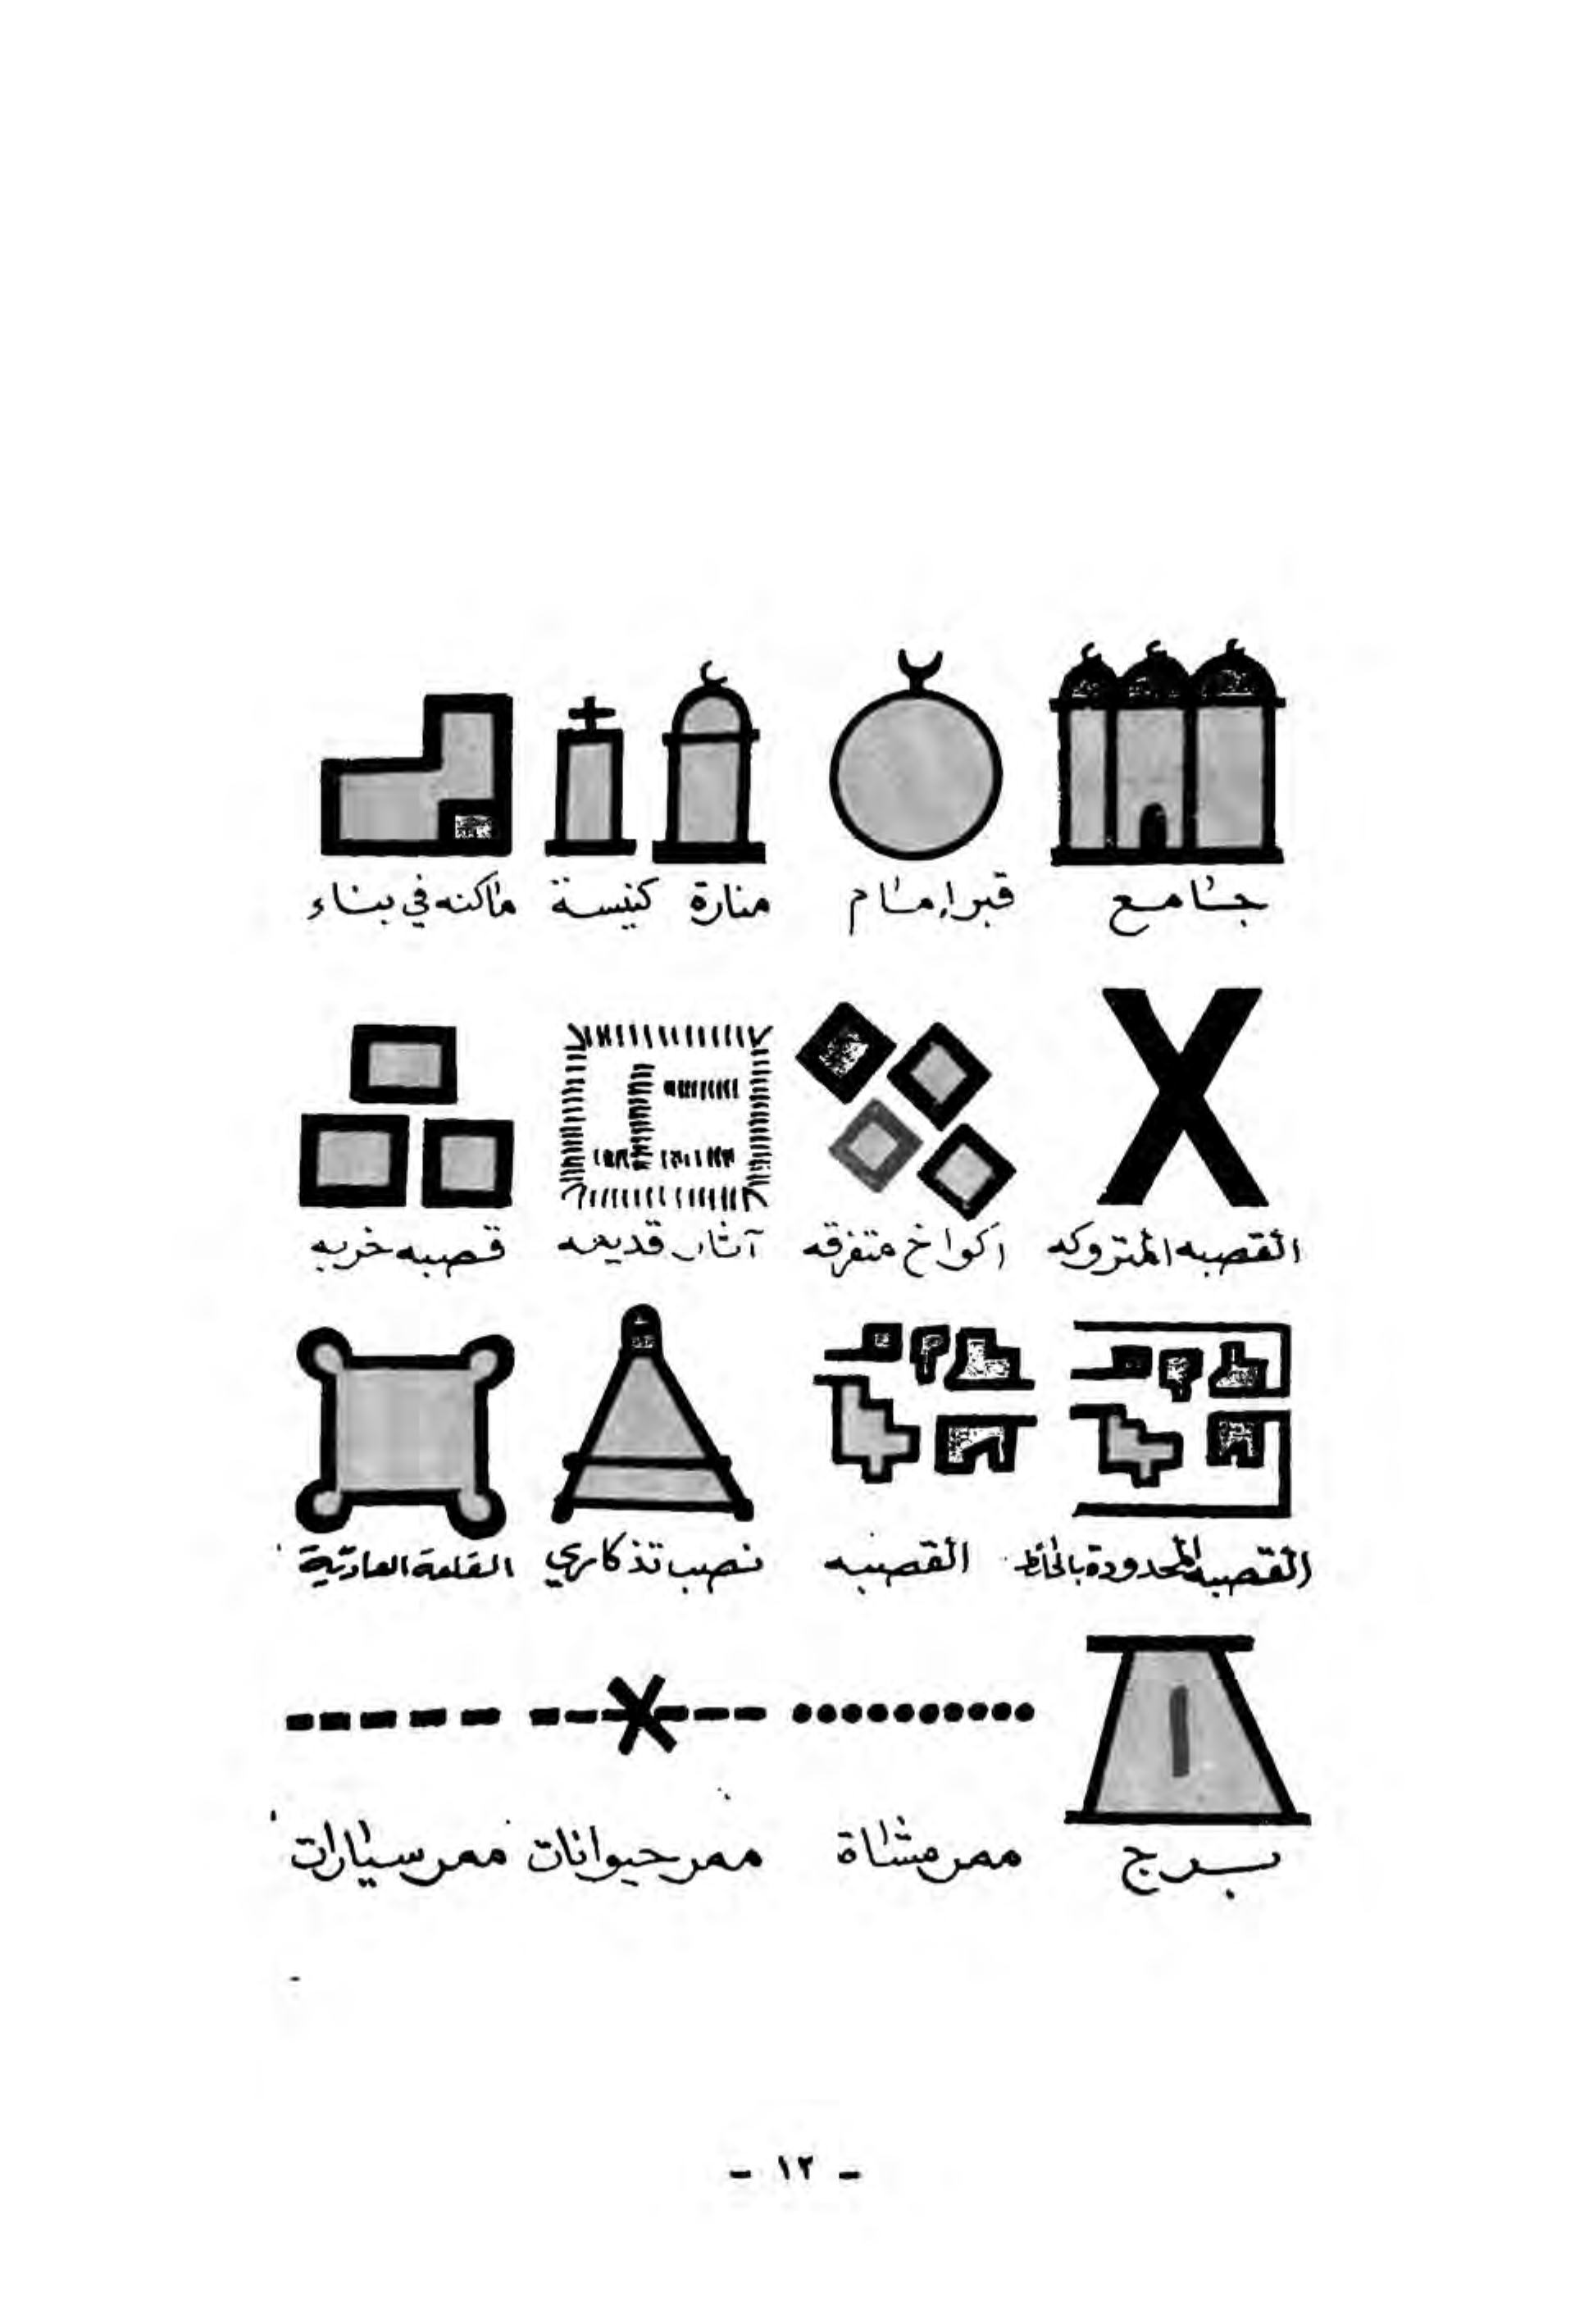 جامع قبر إمام منارة كنيسة ماكنه في بناء
القصبه المتروكه اكواخ متفرقه آثار قديمه قصبه خربه
القصبه المحدودة بالحائط القصبه نصب تذكاري القلعة العادية
برج ممر مشاة ممر حيوانات ممر سيارات
- ١٢ -